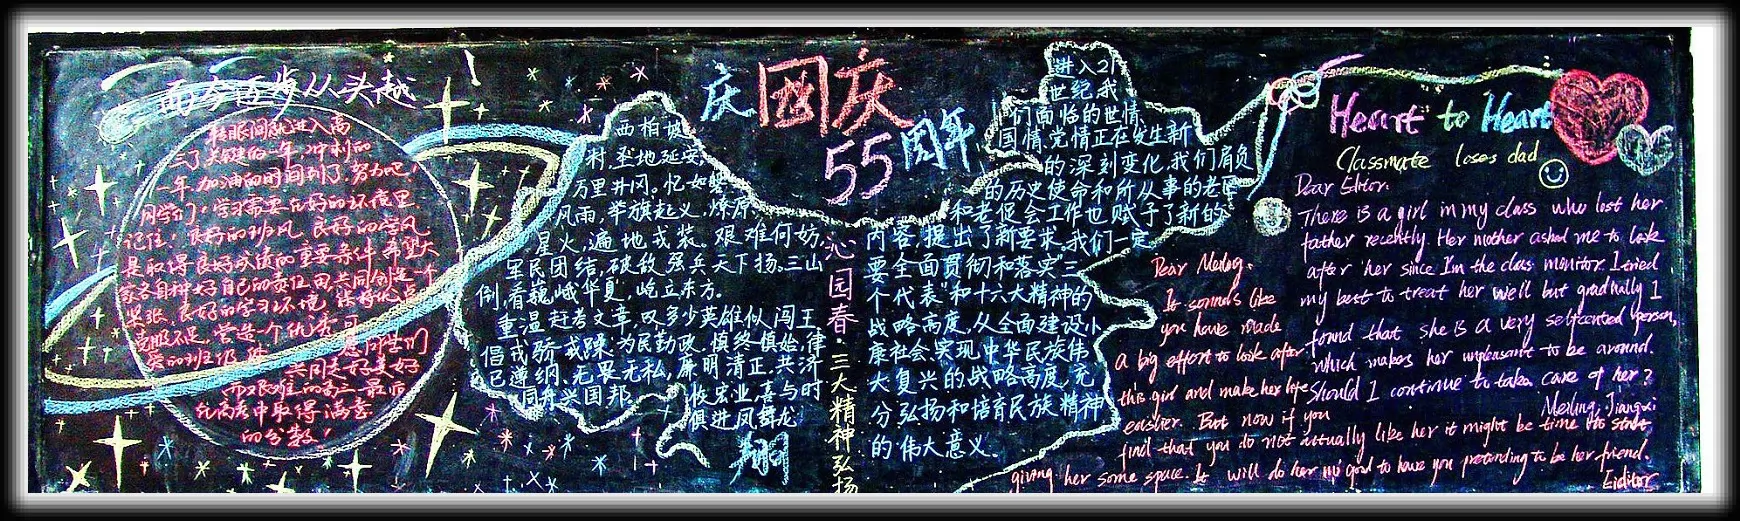 而今迈步从头越!
转眼间就进入高
三了,关键的一年,冲刺的
一年,加油的时间到了,努力吧,
同学们,学习需要在好的环境里.
记住,良好的班风,良好的学风
是取得良好成绩的重要条件,希望大
家各自种好自己的责任田,共同创造一个
紧张,良好的学习环境
营造一个优秀
同学们
共同去好美好
而艰难的高三,最后
在高考中取得满意
的分数!
庆國庆
55周年
西柏坡
村,圣地延安,
万里井冈。忆如磐
风雨,举旗起义,燎原
星火,遍地戎装。艰难何妨,
军民团结,破敌强兵天下扬。三山
倒,看巍峨华夏,屹立东方.
重温赶考文章,叹多少英雄似闯王
倡戒骄戒躁,为民勤政,慎终慎始,律
己遵纲.无畏无私,廉明清正.共济
同舟兴国邦.
恢宏业,喜与时
俱进,凤舞龙
翔
沁园春·三大精神弘扬
进入21
世纪,我
们面临的世情
国情,党情正在发生新
的深刻变化,我们肩负
的历史使命和所从事的老区
和老促会工作也赋予了新的
内容,提出了新要求.我们一定
要全面贯彻和落实"三
个代表"和十六大精神的
战略高度,从全面建设小
康社会,实现中华民族伟
大复兴的战略高度,充
分弘扬和培育民族精神
的伟大意义.
Heart to Heart
Classmate loses dad
Dear Editor.
There is a girl in my class who lost her
father recently. Her mother asked me to look
after her since I'm the class monitor. I tried
my best to treat her well but gradually I
found that she is a very selfcented person,
which makes her unpleasant to be around.
Should I continue to take care of her?
Meiling, Jiangxi
Dear Meiling.
It sounds like
you have made
a big effort to look after
this girl and make her life
easier. But now if you
find that you do not actually like her it might be time to start
giving her some space. It will do her no good to have you pretending to be her friend.
Eiditor